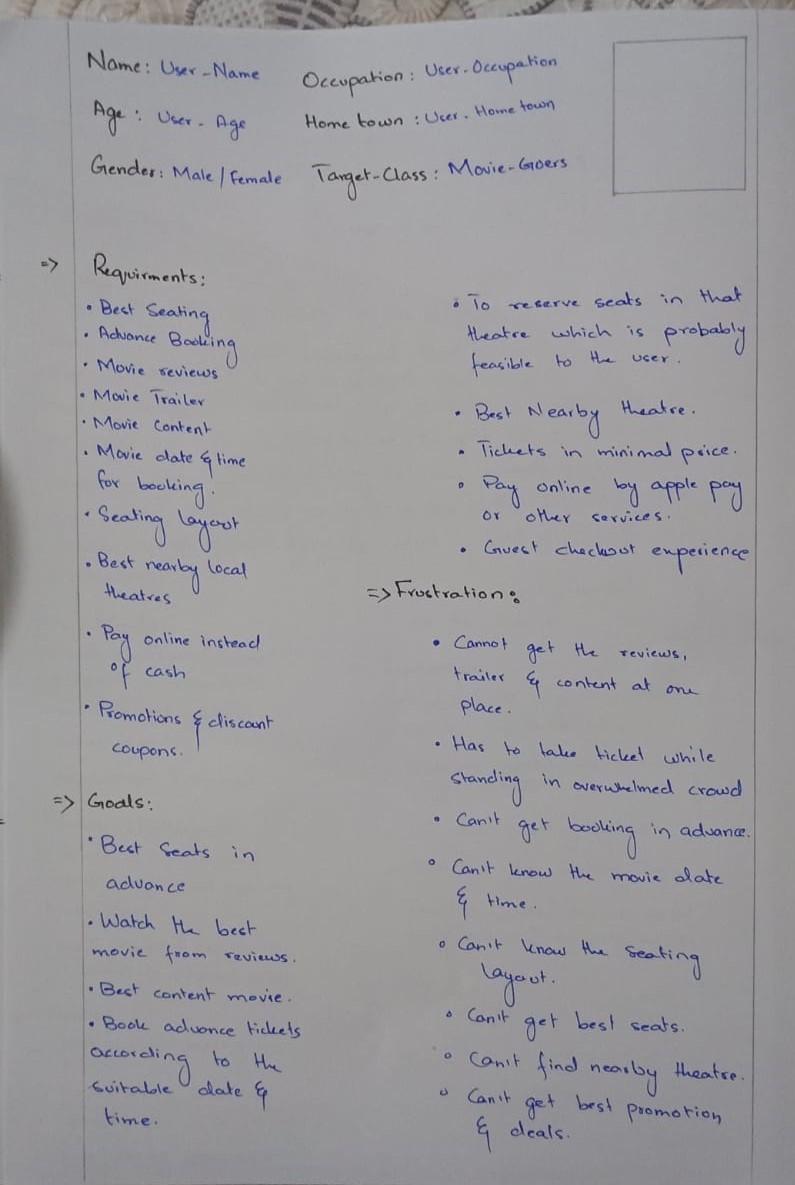 Name: User-Name
Occupation: User-Occupation
Age: User-Age
Home town: User-Home town
Gender: Male/Female
Target-Class: Movie-Goers
=> Requirments:
• Best Seating
• Advance Booking
• Movie reviews
• Movie Trailer
• Movie Content
• Movie date & time
for booking.
• Seating Layout
• Best nearby local
theatres
• Pay online instead
of cash
• Promotions & discount
coupons.
=> Goals:
• Best Seats in
advance
• Watch the best
movie from reviews.
• Best content movie.
• Book advance tickets
according to the
suitable date &
time.
• To reserve seats in that
theatre which is probably
feasible to the user.
• Best Nearby theatre.
• Tickets in minimal price.
• Pay online by apple pay
or other services.
• Guest checkout experience
=> Frustration:
• Cannot get the reviews,
trailer & content at one
place.
• Has to take ticket while
standing in overwhelmed crowd
• Can't get booking in advance.
• Can't know the movie date
& time.
• Can't know the seating
layout.
• Can't get best seats.
• Can't find nearby theatre.
• Can't get best promotion
& deals.